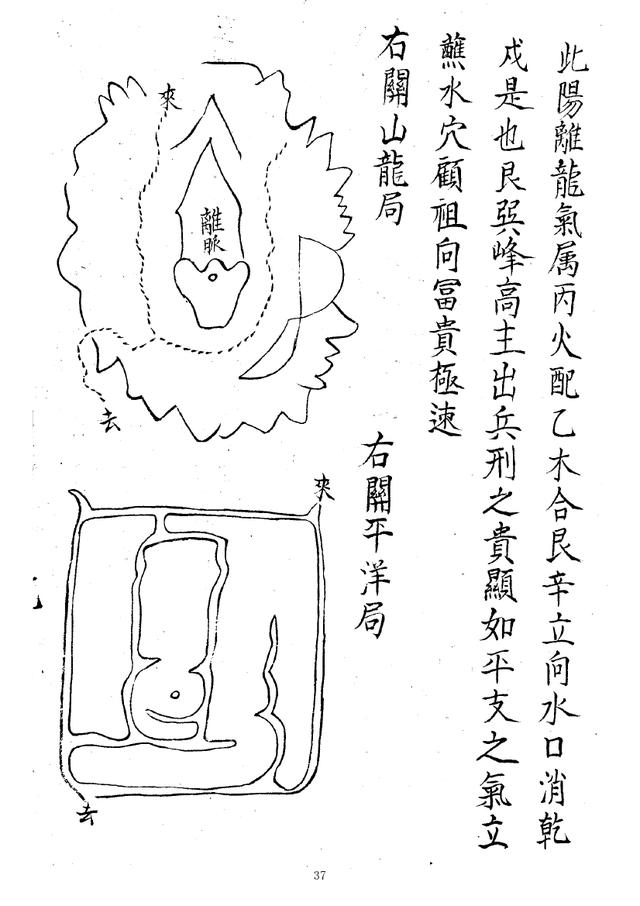 此陽離龍氣属丙火配乙木合艮辛立向水口消乾
戍是也艮巽峰高主出兵刑之貴顯如平支之氣立
蘸水穴顧祖向冨貴極速
右關山龍局
來
離脈
去
右關平洋局
來
去
37